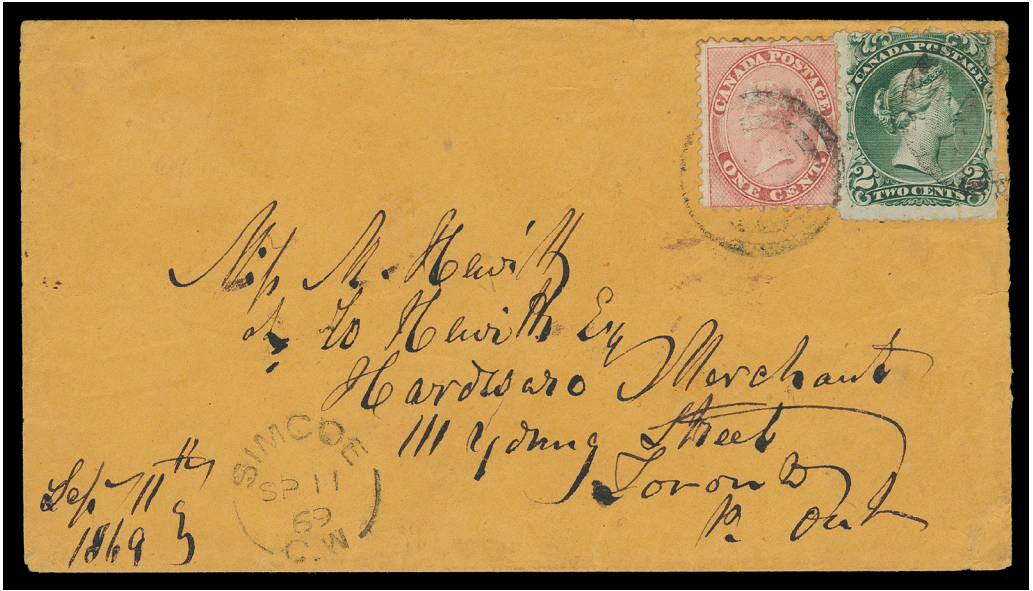 CANADA POSTAGE
ONE CENT.
CANADA POSTAGE
2 TWO CENTS 2
Miss M. Hewitt
Hewitt Esq
Hardware Merchant
111 Young Street
Toronto
P. Ont
SIMCOE
SP 11
69
C.W
Sep 11th
1869